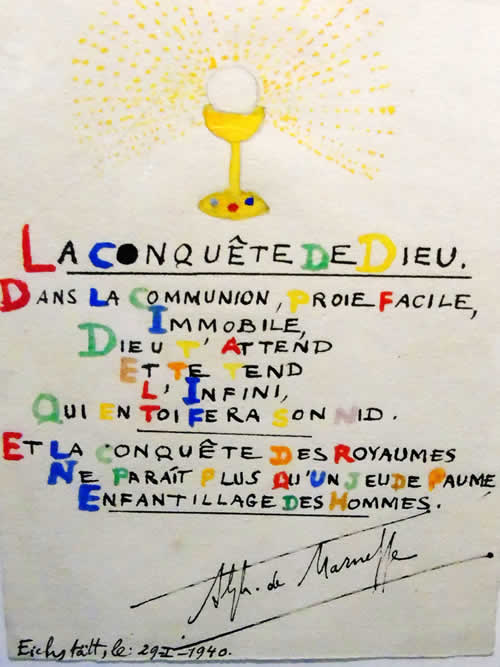 LA CONQUÊTE DE DIEU.
DANS LA COMMUNION, PROIE FACILE,
IMMOBILE,
DIEU T'ATTEND
ET TE TEND
L'INFINI,
QUI EN TOI FERA SON NID.
ET LA CONQUÊTE DES ROYAUMES
NE PARAÎT PLUS QU'UN JEU DE PAUME
ENFANTILLAGE DES HOMMES.
Alph. de Marneffe
Eichstätt, le: 29-I-1940.